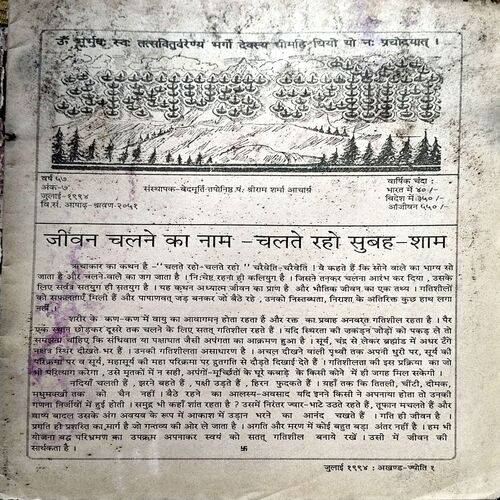 ॐ भूर्भुवः स्वः तत्सवितुर्वरेण्यं भर्गो देवस्य धीमहि धियो यो नः प्रचोदयात् ।
वर्ष ५७
अंक-७
जुलाई-१९९४
वि.सं. आषाढ़-श्रावण-२०५१
संस्थापक-वेदमूर्ति तपोनिष्ठ पं. श्रीराम शर्मा आचार्य
वार्षिक चंदा :
भारत में ४०/-
विदेश में ३५०/-
आजीवन ५५०/-
जीवन चलने का नाम -चलते रहो सुबह-शाम
ऋचाकार का कथन है -''चलते रहो-चलते रहो'' चरैवेति-चरैवेति । वे कहते हैं कि सोने वाले का भाग्य सो
जाता है और चलने वाले का जग जाता है । निःचेष्ट रहना ही कलियुग है । जिसने तनकर चलना आरंभ कर दिया , उसके
लिए सर्वत्र सतयुग ही सतयुग है । यह कथन अध्यात्म जीवन का प्राण है और भौतिक जीवन का एक तथ्य । गतिशीलों
को सफलताएँ मिली हैं और पाषाणवत् जड़ बनकर जो बैठे रहे , उनको निस्तब्धता, निराशा के अतिरिक्त कुछ हाथ लगा
नहीं ।
शरीर के कण-कण में वायु का आवागमन होता रहता है और रक्त का प्रवाह अनवरत गतिशील रहता है । पैर
एक स्थान छोड़कर दूसरे तक चलने के लिए सतत् गतिशील रहते हैं । यदि स्थिरता की जकड़न जोड़ों को पकड़ ले तो
समझना चाहिए कि संधिवात या पक्षाघात जैसी अपंगता का आक्रमण हुआ है । सूर्य, चंद्र से लेकर ब्रह्मांड में अधर टँगे
नक्षत्र स्थिर दीखते भर हैं । उनकी गतिशीलता असाधारण है । अचल दीखने वाली पृथ्वी तक अपनी धुरी पर, सूर्य की
परिक्रमा पर व सूर्य, महासूर्य की महा परिक्रमा पर द्रुतगति से दौड़ते दिखाई देते हैं । गतिशीलता की इस प्रक्रिया का जो
भी परित्याग करेगा , उसे मृतकों में न सही, अपंगों-मूर्च्छितों के घूरे कबाड़े के किसी कोने में ही जगह मिल सकेगी ।
नदियाँ चलती हैं , झरने बहते हैं , पक्षी उड़ते हैं , हिरन फुदकते हैं । यहाँ तक कि तितली, चींटी, दीमक,
मधुमक्खी तक को चैन नहीं । बैठे रहने का आलस्य-अवसाद यदि इनने किसी ने अपनाया होता तो उनकी
गणना निर्जीवों में हुई होती । समुद्र भी कहाँ शांत रहता है ? उसमें निरंतर ज्वार-भाटे उठते रहते हैं, तूफान मचलते हैं और
वाष्प बादल उसके अंग अवयव के रूप में आकाश में उड़ान भरने का आनंद चखते हैं । गति ही जीवन है ।
प्रगति ही प्रशस्ति का मार्ग है जो गन्तव्य की ओर ले जाता है । अगति और मरण में कोई बहुत बड़ा अंतर नहीं है । हम भी
योजना बद्ध परिभ्रमण का उपक्रम अपनाकर स्वयं को सतत् गतिशील बनाये रखें । उसी में जीवन की
सार्थकता है । 卐
जुलाई १९९४ : अखण्ड-ज्योति १